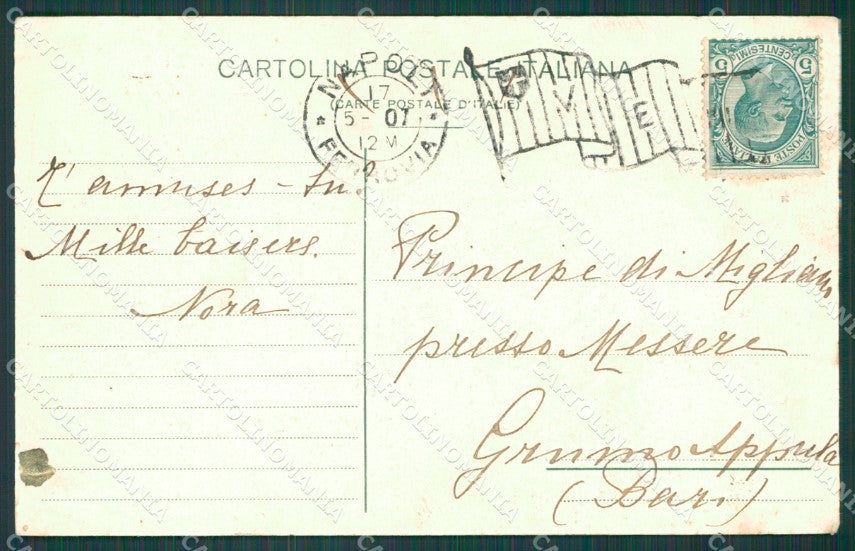 CARTOLINA POSTALE ITALIANA
(CARTE POSTALE D'ITALIE)
NAPOLI
17
5- 07
12M
FERROVIA
CENTESIMI
5
5
POSTE ITALIANE
T'amuses-tu?
Mille baisers.
Nora
Principe di Migliano
presso Messere
Grumo Appula
(Bari)
CARTOLINOMANIA